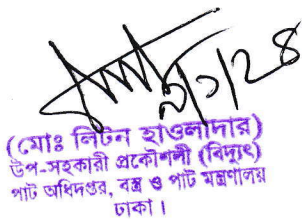 ২/১/২৪
(মোঃ লিটন হাওলাদার)
উপ-সহকারী প্রকৌশলী (বিদ্যুৎ)
পাট অধিদপ্তর, বস্ত্র ও পাট মন্ত্রণালয়
ঢাকা।